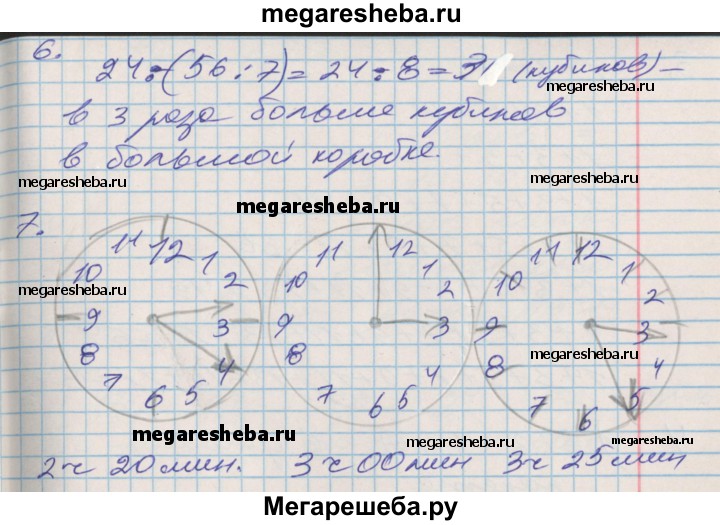 megaresheba.ru
6.
24:(56:7)=24:8=3 (кубиков) –
megaresheba.ru
в 3 раза больше кубиков
в большой коробке.
megaresheba.ru
megaresheba.ru
megaresheba.ru
7.
11 12 1 10 2 9 3 8 4 7 6 5
11 12 1 10 2 9 3 8 4 7 6 5
11 12 1 10 2 9 3 8 4 7 6 5
megaresheba.ru
megaresheba.ru
megaresheba.ru
megaresheba.ru
2 ч 20 мин. 3 ч 00 мин 3 ч 25 мин
Мегарешеба.ру